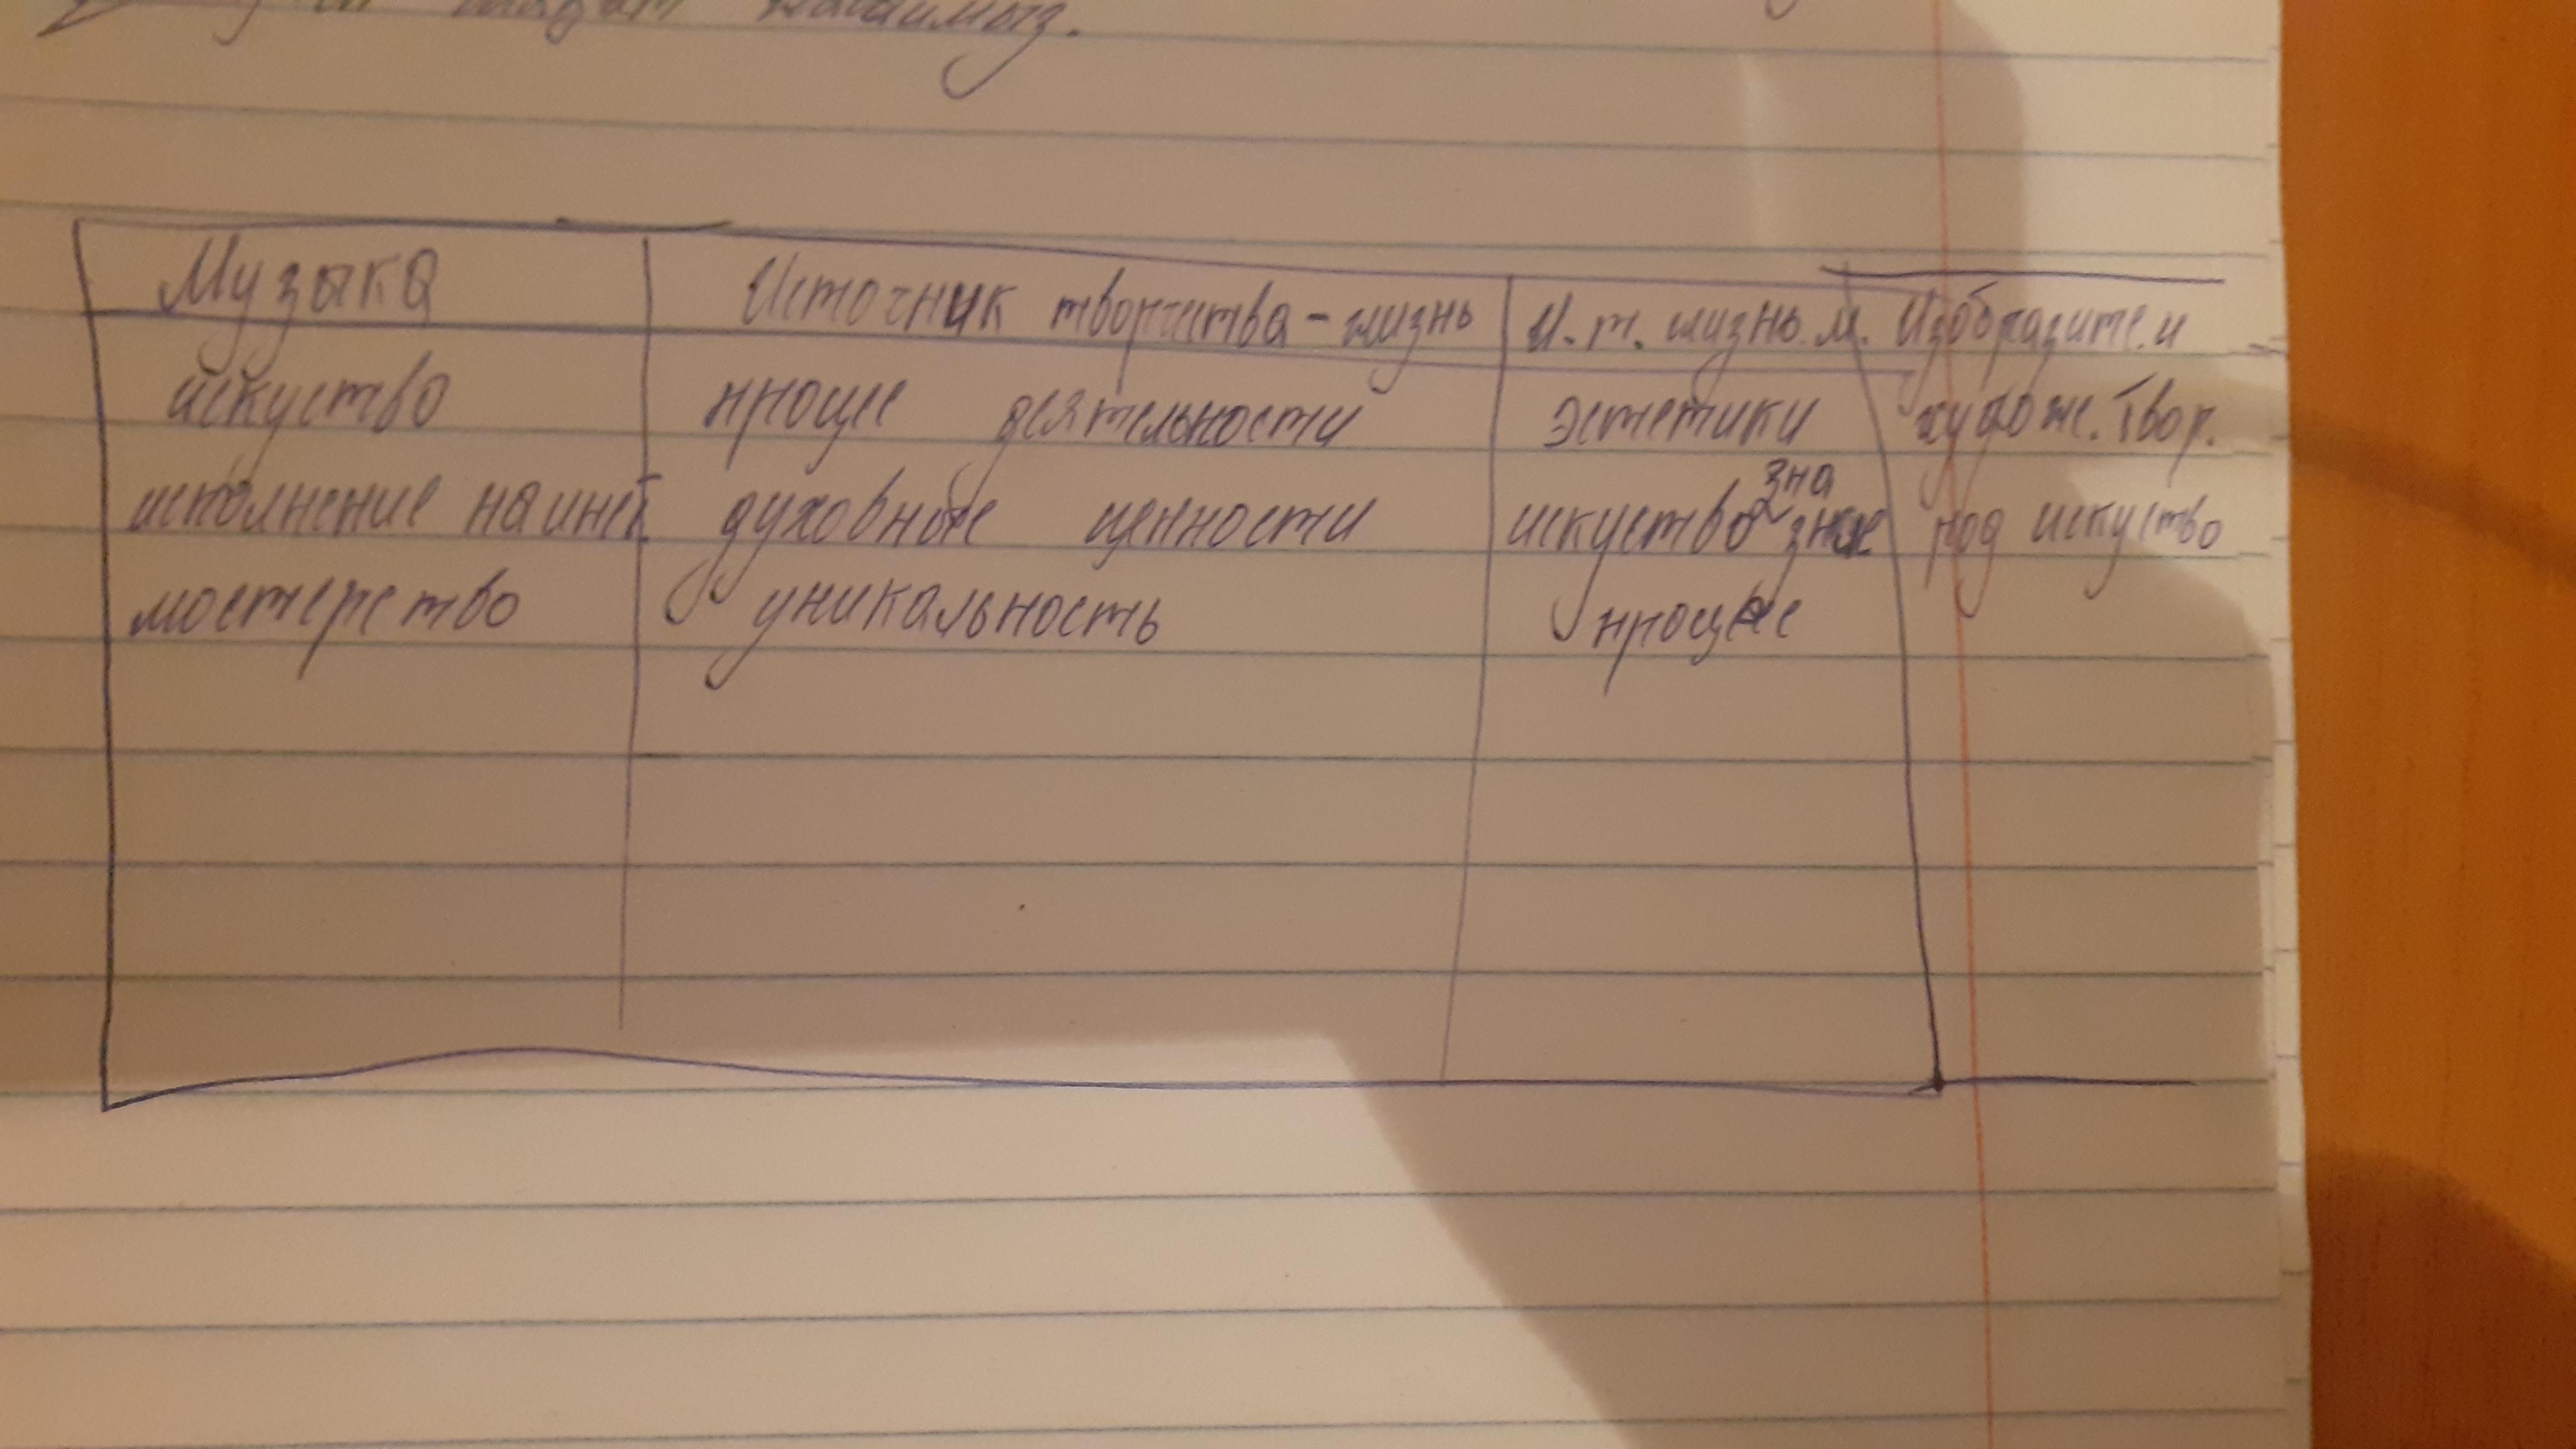 Музыка Источник творчества - жизнь И. т. жизнь. м. Изобразите. и
искуство процес деятельности эстетики художе. твор.
зна
исполнение на инст духовное ценности искуство под искуство
мостерство уникальность процес